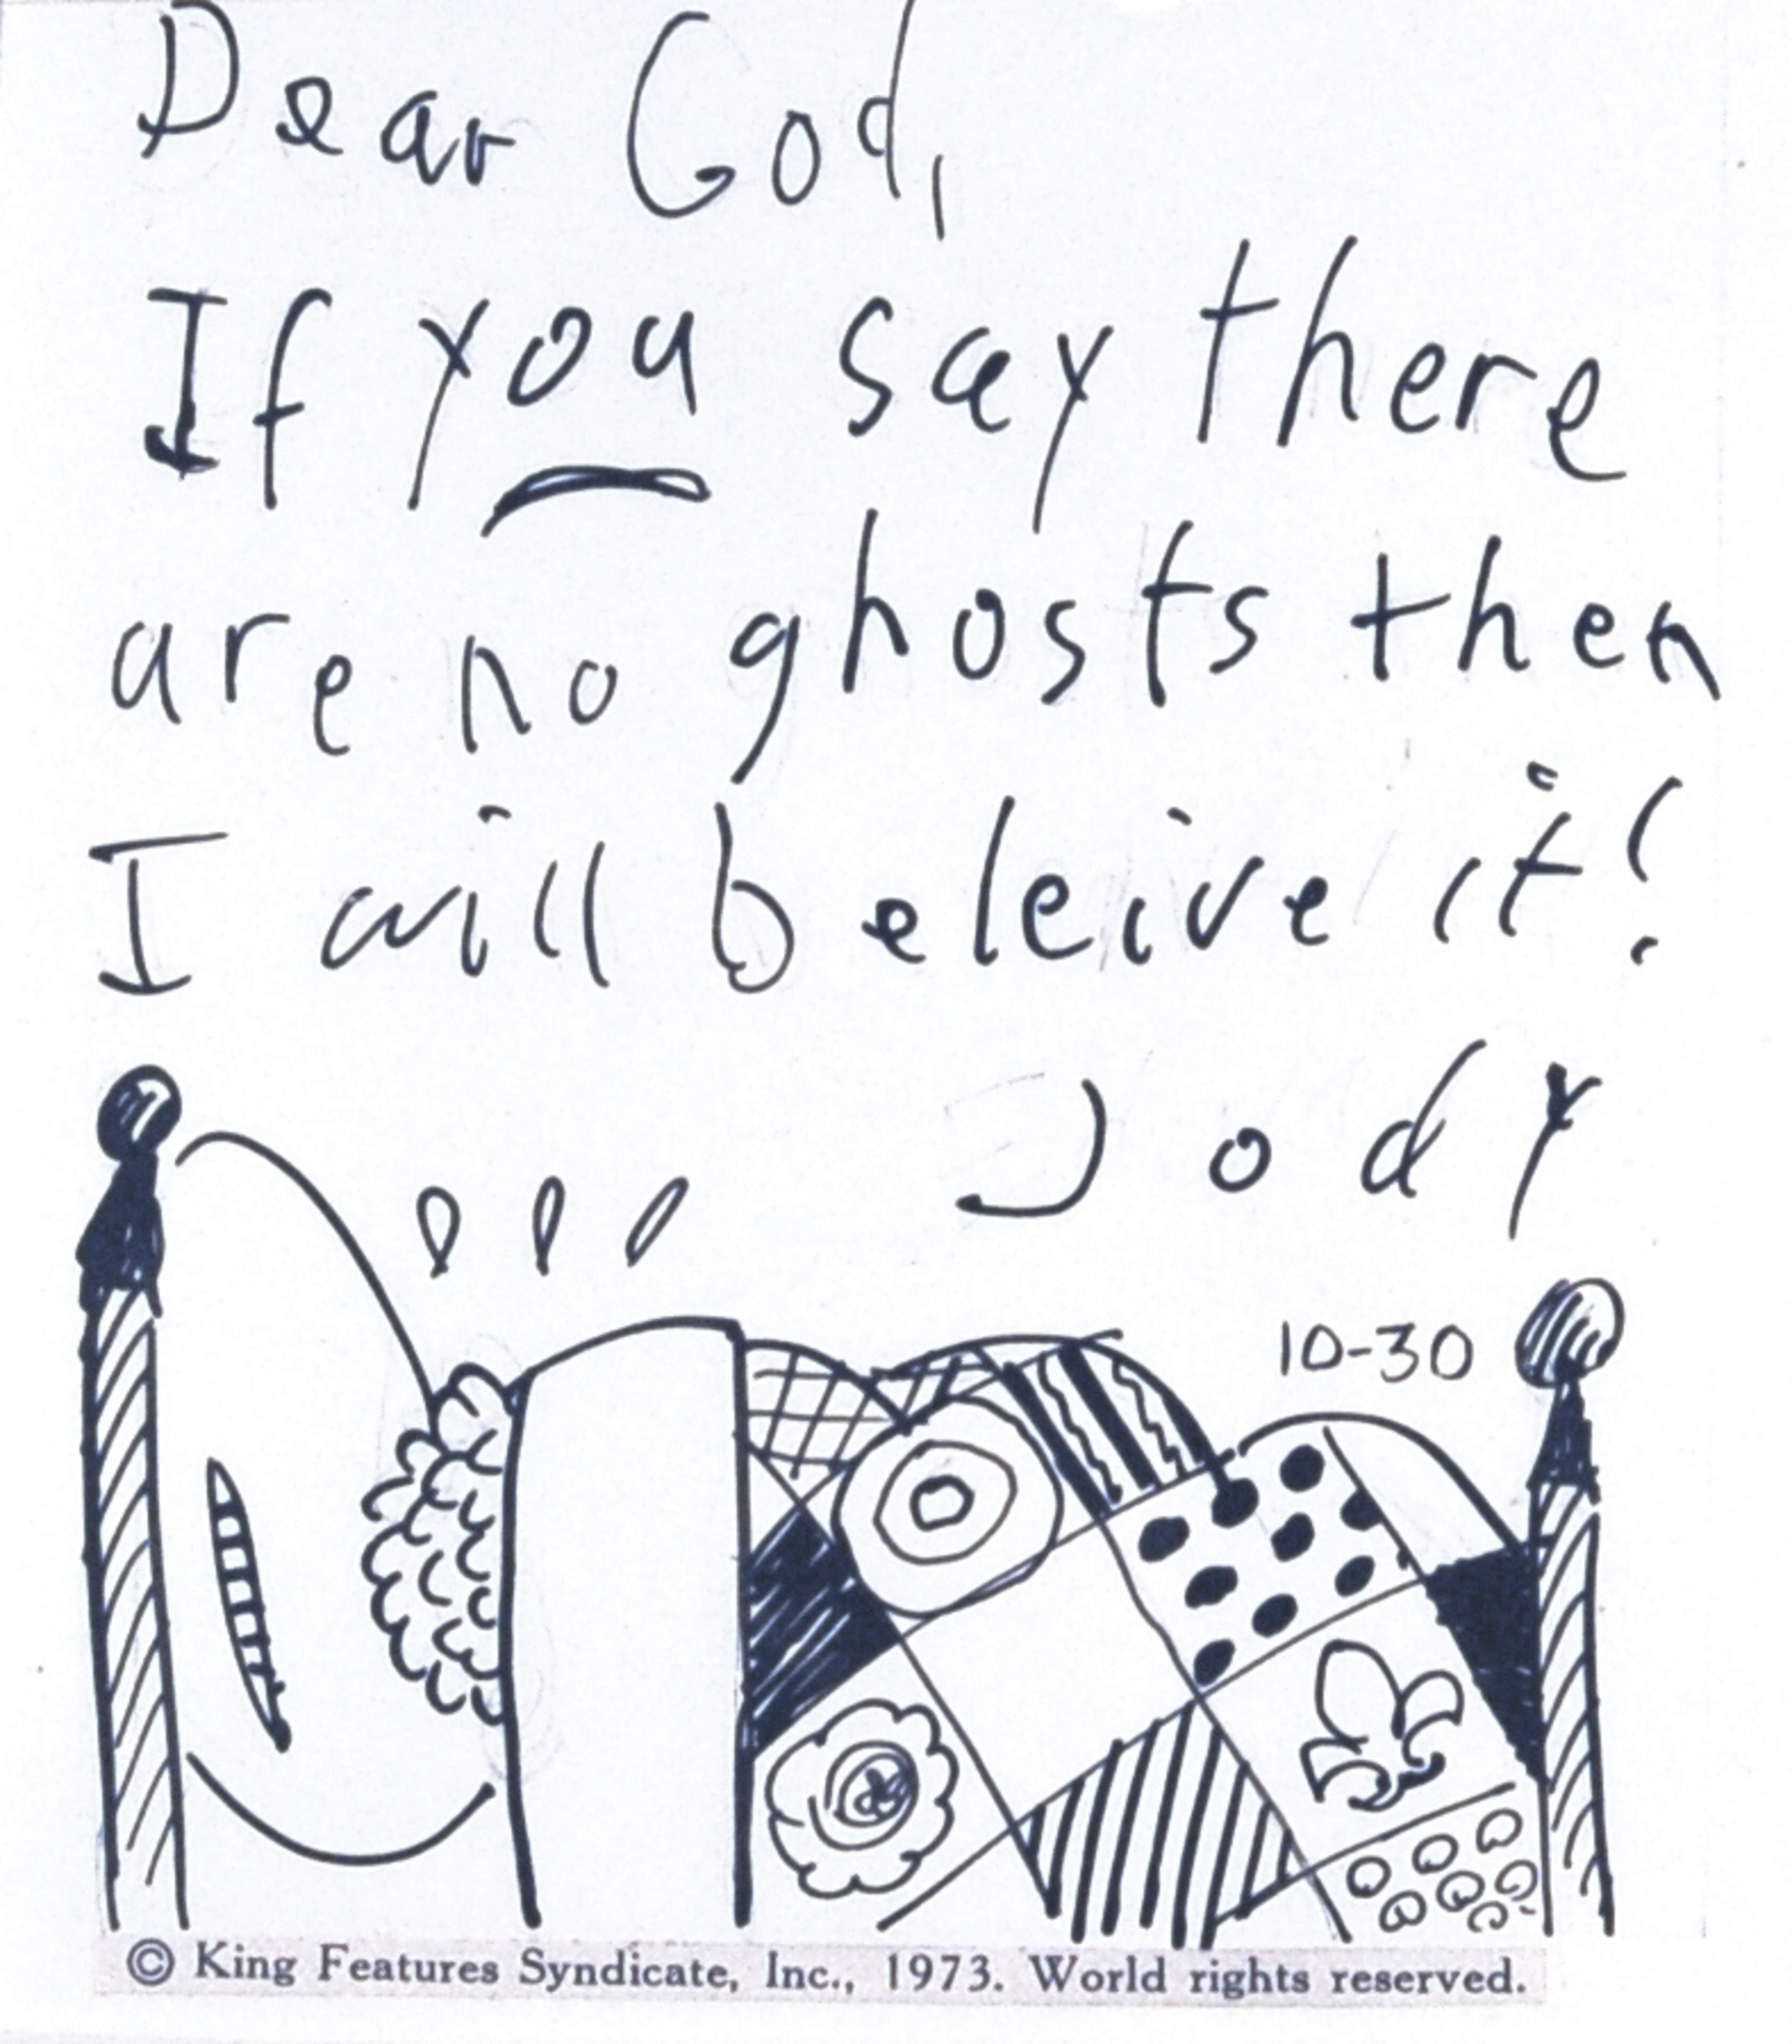 Dear God,
If you say there
are no ghosts then
I will beleive it!
Jody
10-30
© King Features Syndicate, Inc., 1973. World rights reserved.